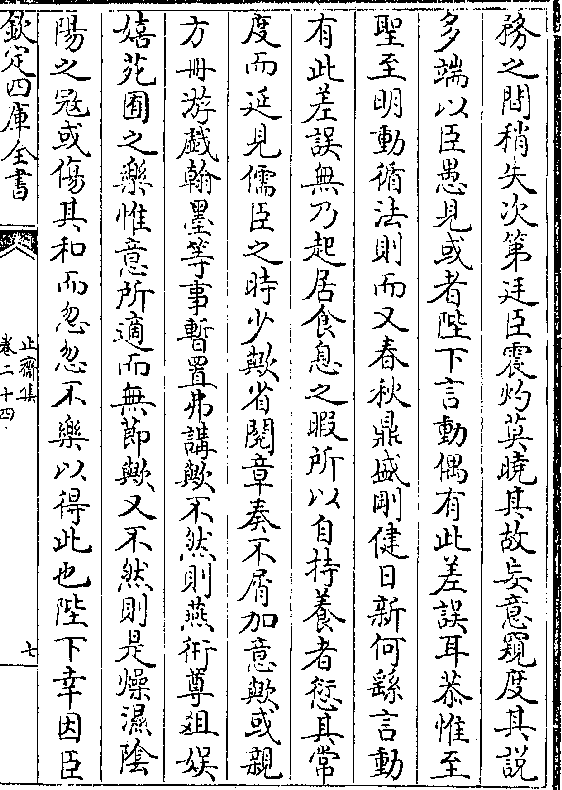 務之間稍失次第廷臣震灼莫曉其故妄意窺度其説
多端以臣愚見或者陛下言動偶有此差誤耳恭惟至
聖至明動循法則而又春秋鼎盛剛健日新何繇言動
有此差誤無乃起居食息之暇所以自持養者愆其常
度而延見儒臣之時少歟省閱章奏不屑加意歟或親
方冊游戲翰墨等事暫置弗講歟不然則燕衎尊俎娱
嬉苑囿之樂惟意所適而無節歟又不然則是燥濕陰
陽之冦或傷其和而忽忽不樂以得此也陛下幸因臣
欽定四庫全書
止齋集
卷二十四
七